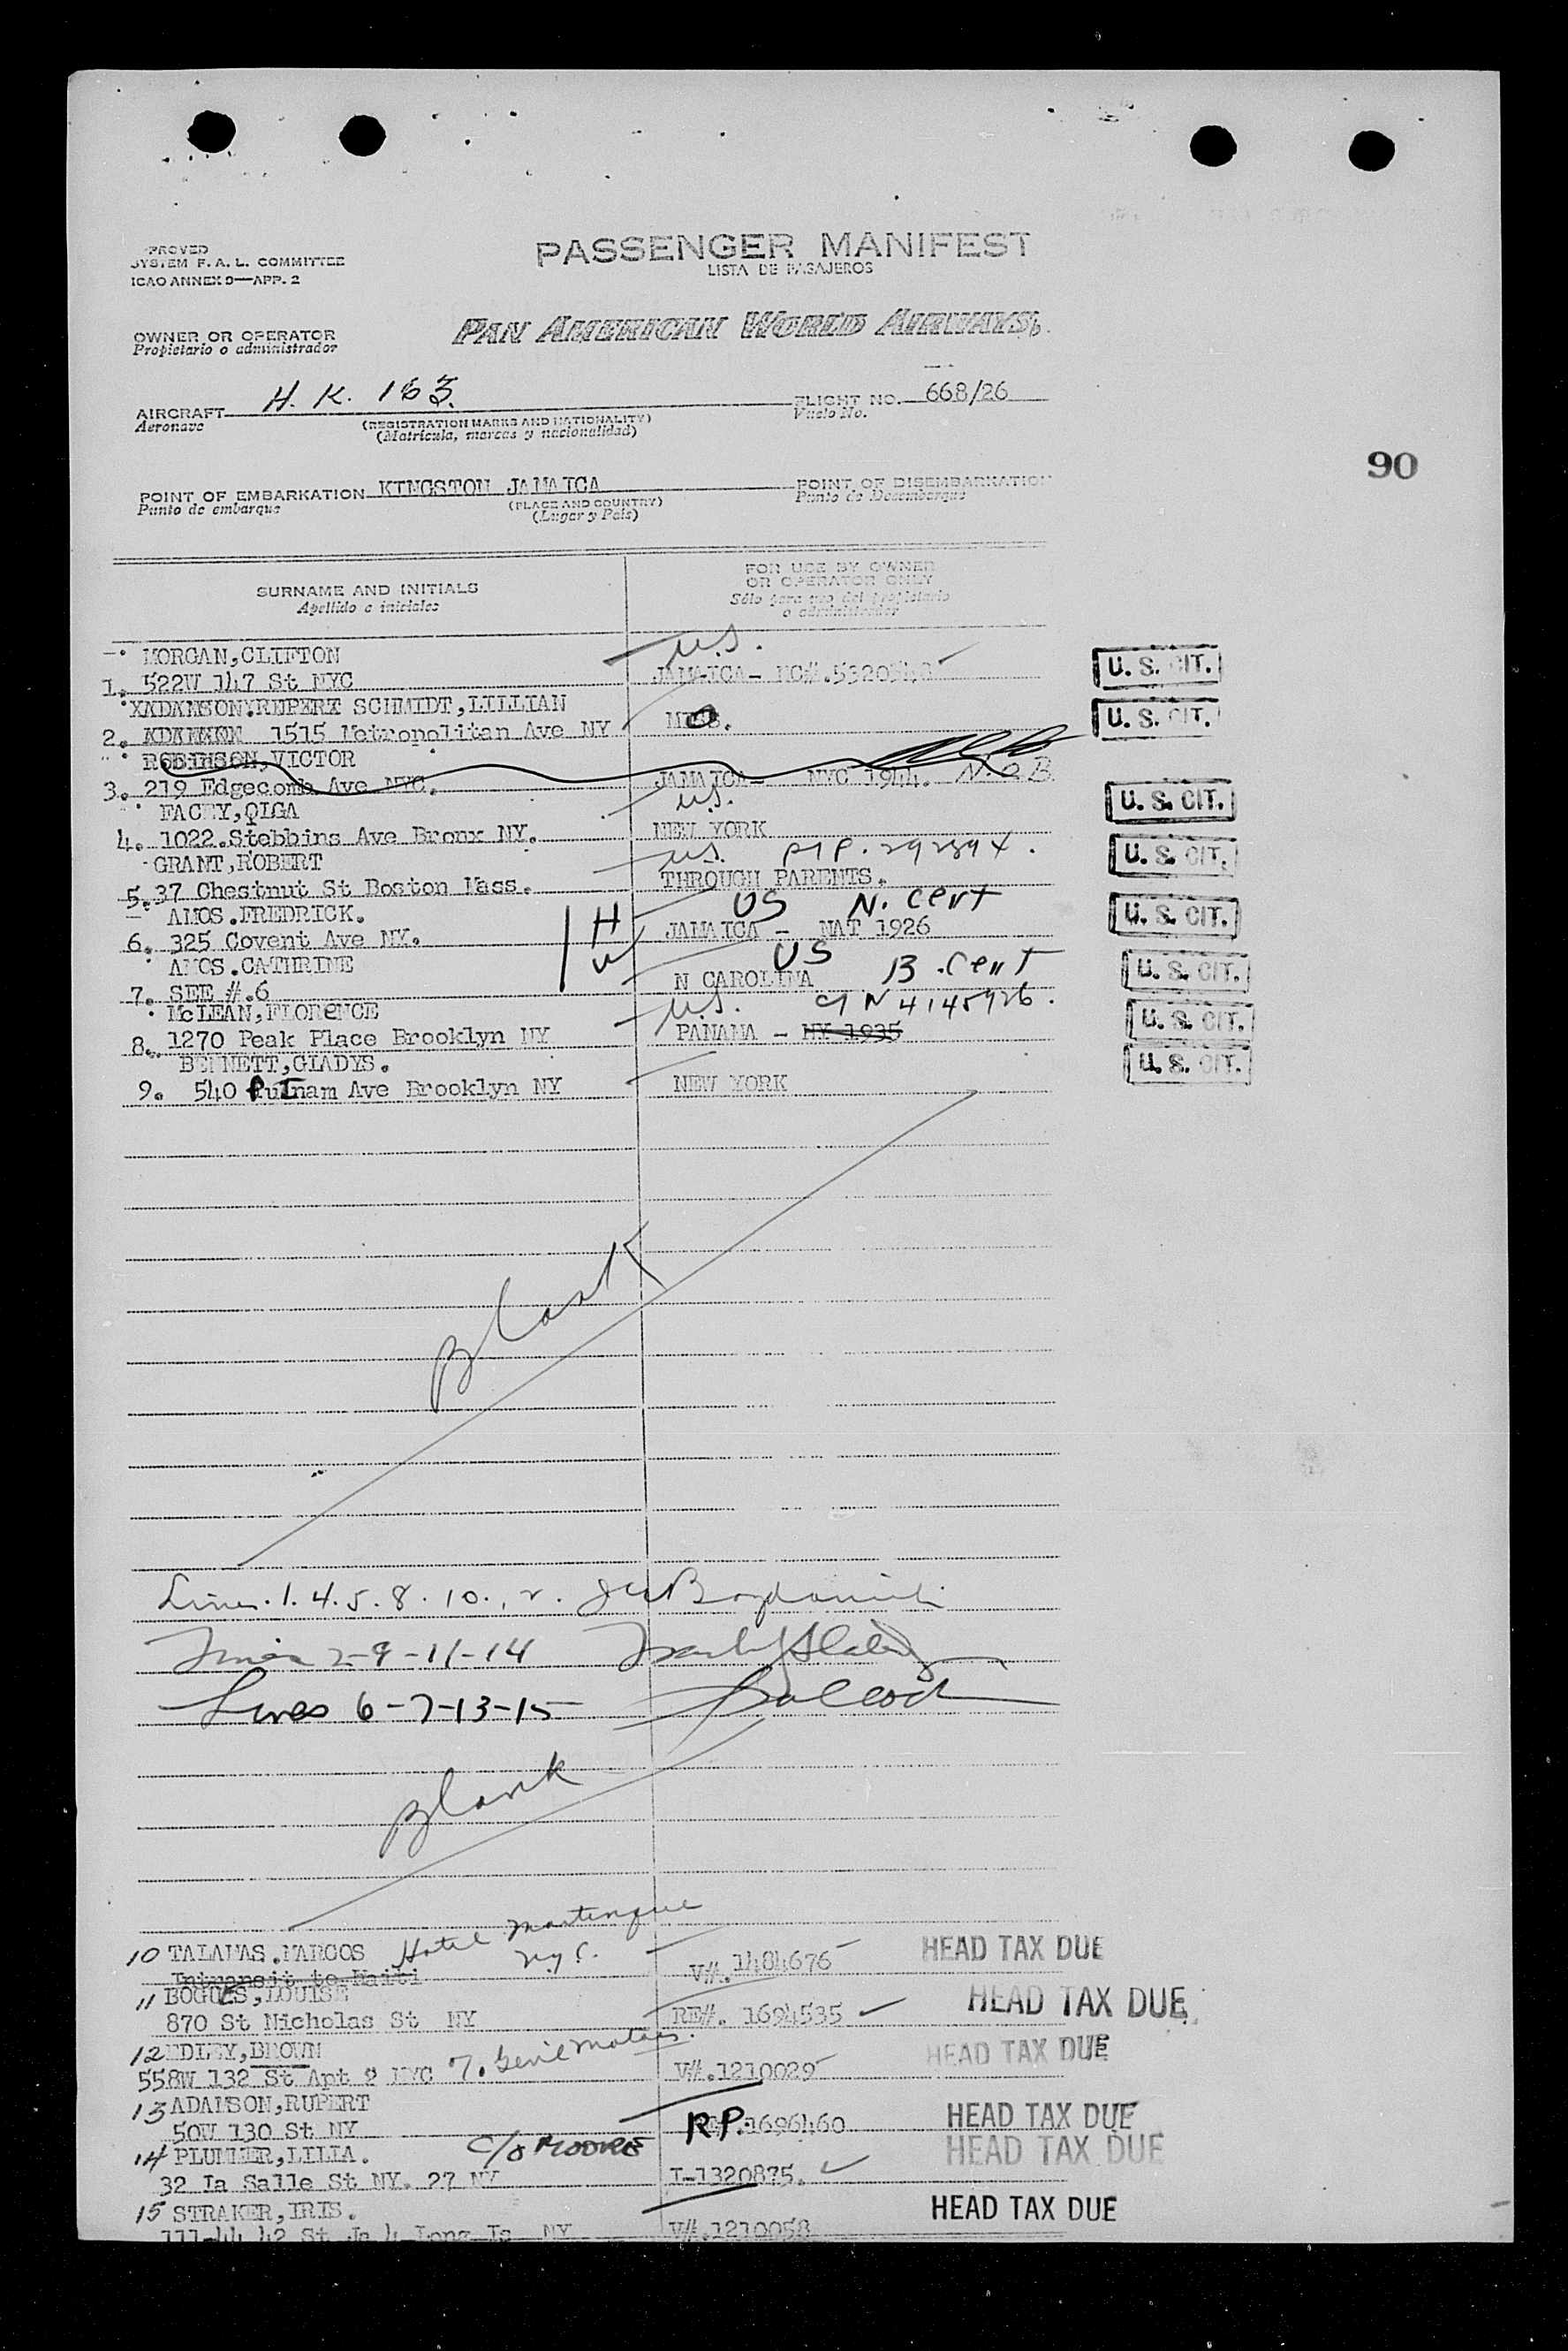 PROVED
SYSTEM F. A. L. COMMITTEE
ICAO ANNEX 9—APP. 2
PASSENGER MANIFEST
LISTA DE PASAJEROS
OWNER OR OPERATOR
Propietario o administrador
PAN AMERICAN WORLD AIRWAYS
AIRCRAFT H. K. 163.
Aeronave
(REGISTRATION MARKS AND NATIONALITY)
(Matrícula, marcas y nacionalidad)
FLIGHT NO. 668/26
Vuelo No.
90
POINT OF EMBARKATION KINGSTON JAMAICA
Punto de embarque
(PLACE AND COUNTRY)
(Lugar y País)
POINT OF DISEMBARKATION
Punto de Desembarque
SURNAME AND INITIALS
Apellido e iniciales
FOR USE BY OWNER
OR OPERATOR ONLY
Sólo para uso del propietario
o administrador
MORGAN,CLIFTON U.S.
1. 522W 147 St NYC JAMAICA- NC#. U. S. CIT.
XADAMSON.RUPERT SCHMIDT,LILLIAN
2. ADAMSON 1515 Metropolitan Ave NY U. S. CIT.
ROBINSON,VICTOR
3. 219 Edgecomb Ave NYC. JAMAICA- NYC 1944. N.O B.
FACEY,OLGA U.S.
4. 1022.Stebbins Ave Bronx NY. NEW YORK U. S. CIT.
GRANT,ROBERT U.S. P1P. 292894.
5. 37 Chestnut St Boston Mass. THROUGH PARENTS. U. S. CIT.
AMOS.FREDRICK. H US N. Cert
6. 325 Covent Ave NY. JAMAICA - NAT 1926 U. S. CIT.
AMOS.CATHRINE W US B. Cert
7. SEE #.6 N CAROLINA U. S. CIT.
McLEAN,FLORENCE U.S. C1N 4145926.
8. 1270 Peak Place Brooklyn NY PANAMA - NY 1935 U. S. CIT.
BENNETT,GLADYS.
9. 540 PuTnam Ave Brooklyn NY NEW YORK U. S. CIT.
Blank
Lines. 1. 4. 5. 8. 10.
Lines 2-9-11-14
Lines 6-7-13-15
Blank
10 TALAMAS.MARCOS Hotel Martinque
Intransit to Haiti NYC. V#.1484676 HEAD TAX DUE
11 BOGUES,LOUISE
870 St Nicholas St NY RE#. 1694535 HEAD TAX DUE
12 EDLEY,BROWN
558W 132 St Apt 2 NYC V#.1210029 HEAD TAX DUE
13 ADAMSON,RUPERT
50W 130 St NY R.P. 1696460 HEAD TAX DUE
14 PLUMMER,LILIA. C/o MOORE HEAD TAX DUE
32 La Salle St NY. 27 NY I-1320875.
15 STRAKER,IRIS. HEAD TAX DUE
111-44 42 St Ja 4 Long Is NY V#.1210058